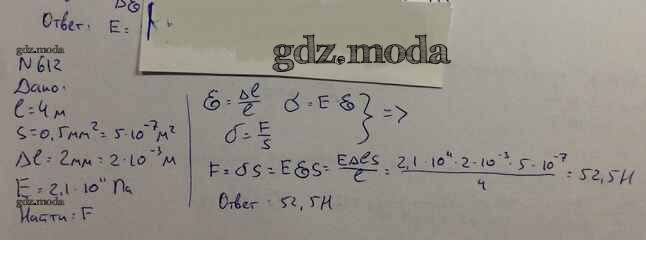 Δ
Ответ: E =
gdz.moda
N 612
Дано:
l = 4 м
S = 0,5 мм² = 5·10⁻⁷ м²
Δl = 2мм = 2·10⁻³ м
E = 2,1·10¹¹ Па
gdz.moda
Найти: F
ℰ = Δl/l σ = E·ℰ } =>
σ = F/S
F = σS = EℰS = EΔlS/l = 2,1·10¹¹·2·10⁻³·5·10⁻⁷/4 = 52,5Н
Ответ: 52,5Н